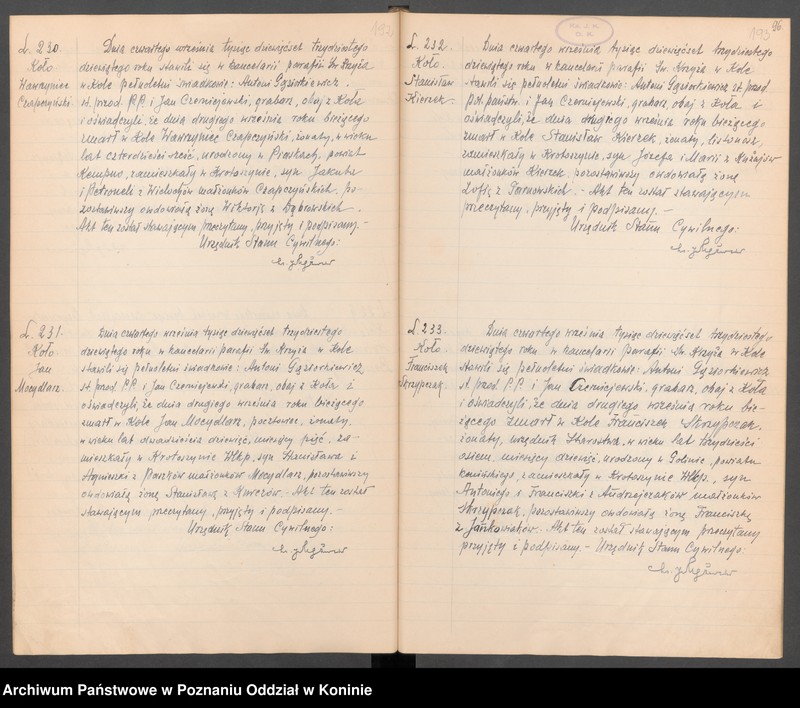 192
L. 230.
Koło
Wawrzyniec
Czapczyński.
Dnia czwartego września tysiąc dziewięćset trzydziestego
dziewiątego roku stawili się w kancelarii parafii Św. Krzyża
w Kole pełnoletni świadkowie: Antoni Gąsiorkiewicz.
st. przod. P.P. i Jan Czerniejewski, grabarz, obaj z Koła
i oświadczyli, że dnia drugiego września roku bieżącego
zmarł w Kole Wawrzyniec Czapczyński, żonaty, w wieku
lat czterdzieści sześć, urodzony w powiat
Kempno, zamieszkały w Krotoszynie, syn Jakuba
i Petroneli z małżonków Czapczyńskich, po-
zostawiwszy owdowiałą żonę Wiktorję z Dąbrowskich.
Akt ten został stawającym przeczytany, przyjęty i podpisany. –
Urzędnik Stanu Cywilnego:
L. 231.
Koło
Jan
Mocydlarz.
Dnia czwartego września tysiąc dziewięćset trzydziestego
dziewiątego roku w kancelarii parafii Św. Krzyża w Kole
stawili się pełnoletni świadkowie: Antoni Gąsiorkiewicz
st. przod. P.P. i Jan Czerniejewski, grabarz, obaj z Koła i
oświadczyli, że dnia drugiego września roku bieżącego
zmarł w Kole Jan Mocydlarz, pocztowiec, żonaty,
w wieku lat dwadzieścia dziewięć, miesięcy pięć, za-
mieszkały w Krotoszynie Wlkp. syn Stanisława i
Agnieszki z małżonków Mocydlarz, pozostawiwszy
owdowiałą żonę Stanisławę z Akt ten został
stawającym przeczytany, przyjęty i podpisany. –
Urzędnik Stanu Cywilnego:
193
96
L. 232.
Koło.
Stanisław
Kierzek.
Dnia czwartego września tysiąc dziewięćset trzydziestego
dziewiątego roku w kancelarii parafii Św. Krzyża w Kole
stawili się pełnoletni świadkowie: Antoni Gąsiorkiewicz st. przod.
P.P. państw. i Jan Czerniejewski, grabarz, obaj z Koła i
oświadczyli, że dnia drugiego września roku bieżącego
zmarł w Kole Stanisław Kierzek, żonaty, listonosz,
zamieszkały w Krotoszynie, syn Józefa i Marii z
małżonków Kierzek, pozostawiwszy owdowiałą żonę
Zofię z Tarnowskich. – Akt ten został stawającym
przeczytany, przyjęty i podpisany. –
Urzędnik Stanu Cywilnego:
L. 233.
Koło.
Franciszek
Skrzypczak.
Dnia czwartego września tysiąc dziewięćset trzydziestego
dziewiątego roku w kancelarii parafii Św. Krzyża w Kole
stawili się pełnoletni świadkowie: Antoni Gąsiorkiewicz
st. przod. P.P. i Jan Czerniejewski, grabarz, obaj z Koła
i oświadczyli, że dnia drugiego września roku bie-
żącego zmarł w Kole Franciszek Skrzypczak,
żonaty, urzędnik Starostwa, w wieku lat trzydzieści
osiem, miesięcy dziewięć, urodzony w Golinie, powiatu
konińskiego, zamieszkały w Krotoszynie Wlkp., syn
Antoniego i Franciszki z Andrzejczaków małżonków
Skrzypczak, pozostawiwszy owdowiałą żonę Franciszkę
z Jańkowiaków. Akt ten został stawającym przeczytany
przyjęty i podpisany. – Urzędnik Stanu Cywilnego:
Archiwum Państwowe w Poznaniu Oddział w Koninie